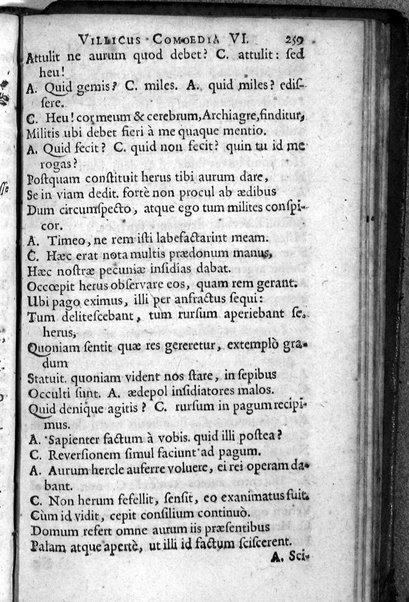 VILLICUS COMOEDIA VI. 259
Attulit ne aurum quod debet? C. attulit: sed
heu!
A. Quid gemis? C. miles. A. quid miles? edis-
sere.
C. Heu! cor meum & cerebrum, Archiagre, finditur,
Militis ubi debet fieri à me quaque mentio.
A. Quid fecit? C. quid non fecit? quin tu id me
rogas?
Postquam constituit herus tibi aurum dare,
Se in viam dedit. fortè non procul ab ædibus
Dum circumspecto, atque ego tum milites conspi-
cor.
A. Timeo, ne rem isti labefactarint meam.
C. Hæc erat nota multis prædonum manus,
Hæc nostræ pecuniæ insidias dabat.
Occœpit herus observare eos, quam rem gerant.
Ubi pago eximus, illi per anfractus sequi:
Tum delitescebant, tum rursum aperiebant se,
herus,
Quoniam sentit quæ res gereretur, extemplò gra-
dum
Statuit. quoniam vident nos stare, in sepibus
Occulti sunt. A. ædepol insidiatores malos.
Quid denique agitis? C. rursum in pagum recipi-
mus.
A. Sapienter factum à vobis. quid illi postea?
C. Reversionem simul faciunt ad pagum.
A. Aurum hercle auferre voluere, ei rei operam da-
bant.
C. Non herum fefellit, sensit, eo exanimatus fuit.
Cùm id vidit, cepit consilium continuò.
Domum refert omne aurum iis præsentibus
Palam atque apertè, ut illi id factum sciscerent.
A. Sci-